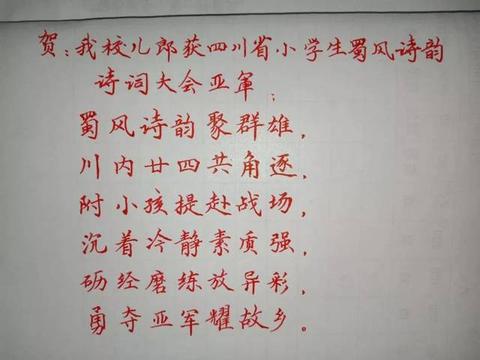 贺:我校儿郎获四川省小学生蜀风诗韵
诗词大会亚军;
蜀风诗韵聚群雄,
川内廿四共角逐,
附小孩提赴战场,
沉着冷静素质强,
砺经磨练放异彩,
勇夺亚军耀故乡。